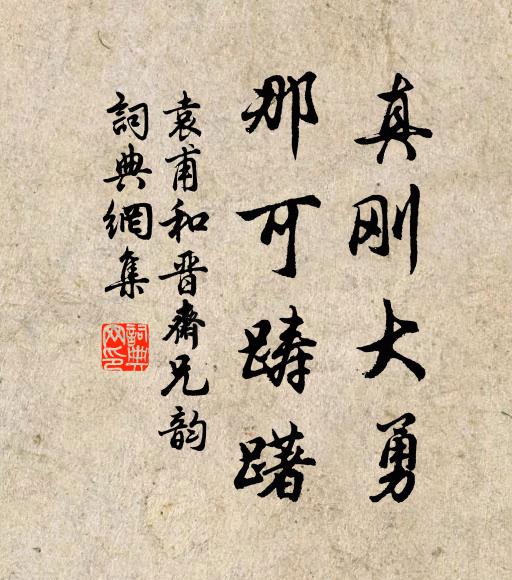 真刚大勇
那可踌躇
袁甫和晋斋兄韵
詞典網集
詞典网印